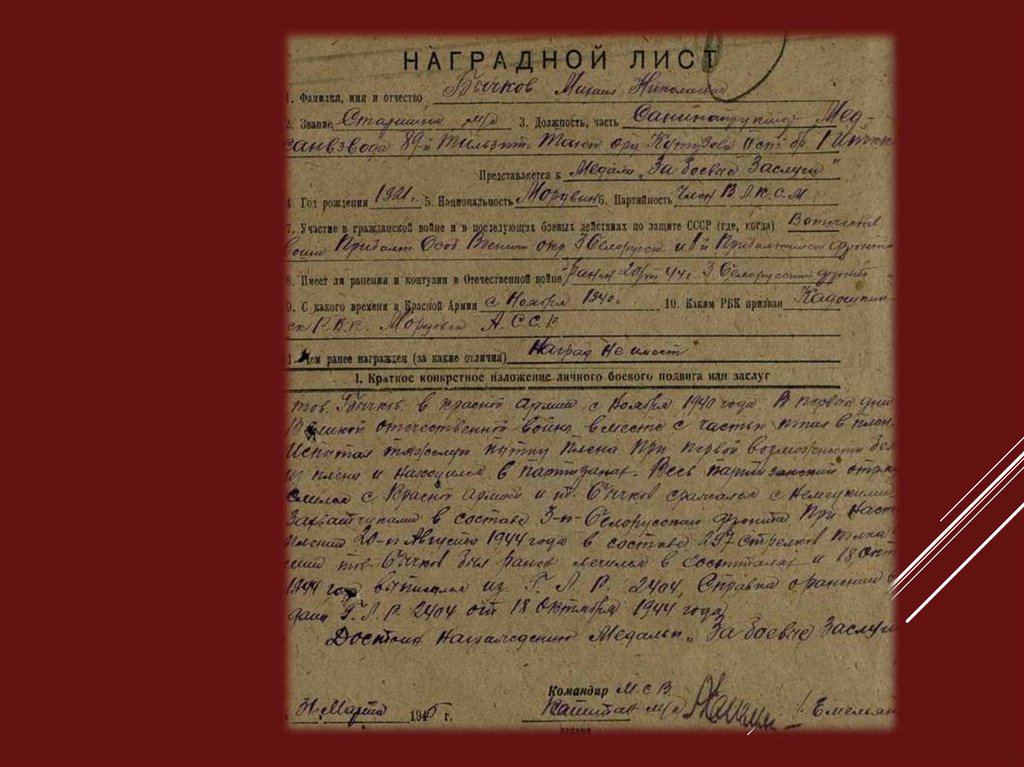 НАГРАДНОЙ ЛИСТ
1. Фамилия, имя и отчество Бычков Михаил Николаевич
2. Звание Старшина м/с 3. Должность, часть Санинструктор Мед-
санвзвода 89-й Тильзит. орд Кутузова II ст бр 1
Представляется к Медали „За боевые Заслуги"
4 Год рождения 1921 г. 5. Национальность Мордвин 6. Партийность Член ВЛКСМ
7. Участие в гражданской войне и в последующих боевых действиях по защите СССР (где, когда) В отечеств
войне Прибалт Особ Военный окр 3 Белорусск и 1й Прибалтийский фронта
8. Имеет ли ранения и контузии в Отечественной войне ранен 20/VIII 44 г. 3 Белорусский фронт
9. С какого времени в Красной Армии с Ноября 1940 г. 10. Каким РВК призван Кадошкин-
ск РВК. Мордовск АССР
11. Чем ранее награжден (за какие отличия) Наград не имеет
I. Краткое конкретное изложение личного боевого подвига или заслуг
тов. Бычков в Красной армии с Ноября 1940 года В первые дни
Великой отечественной войны вместе с частью попал в плен.
Испытал тяжелую пытку плена При первой возможности бежал
из плена и находился в партизанах. Весь партизанский отряд
с Красной Армией и т. Бычков сражался с Немецкими
Захватчиками в составе 3-го Белорусского фронта При Наст
плении 20-го Августа 1944 года в составе 297 стрелков полка
тов. Бычков был ранен лечился в Госпиталях и 18 Окт
1944 год выписался из Г. Л. Р. 2404, Справка о ранении
дана Г.Л.Р. 2404 от 18 Октября 1944 года
Достоин награждению Медалью „За боевые Заслуги
Командир М С В
Капитан м/с Емельян
31 Марта 1945 г.